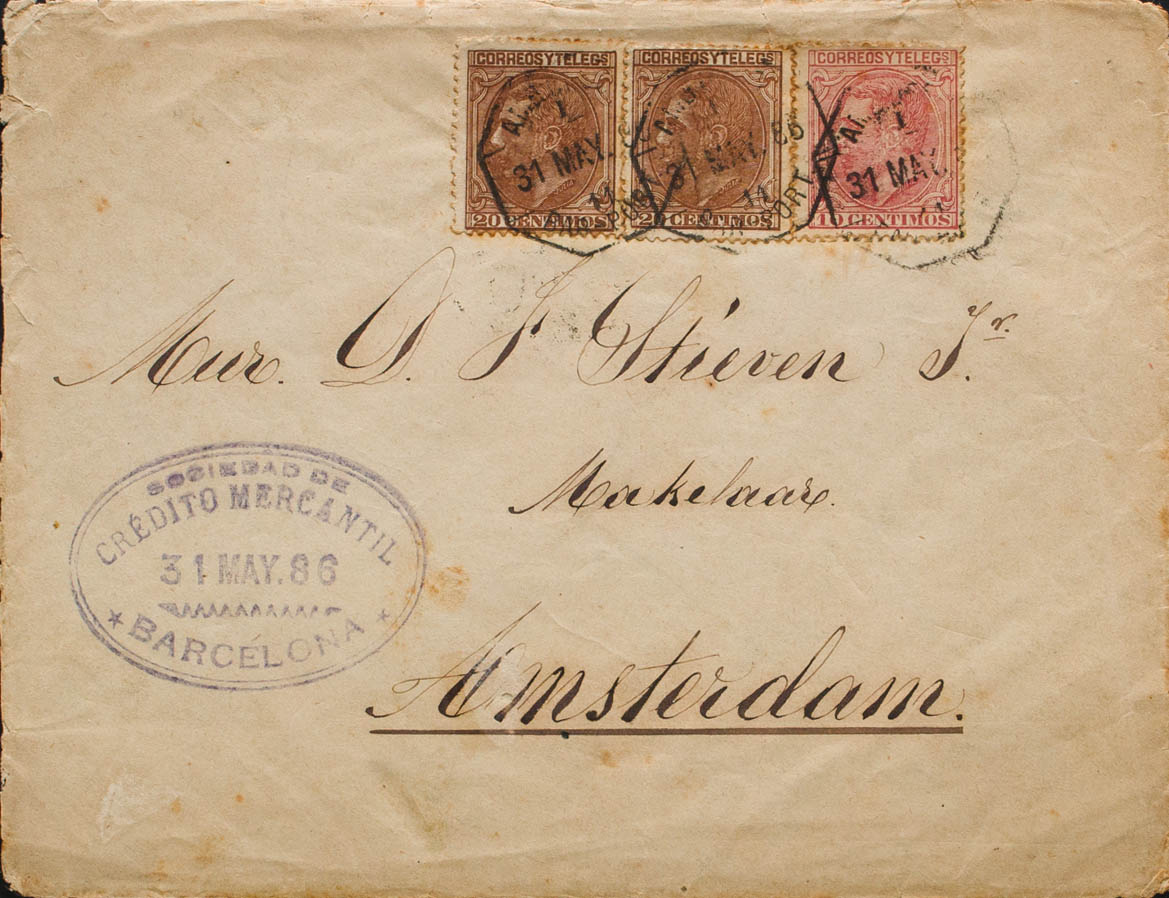 CORREOS Y TELEGS CORREOS Y TELEGS CORREOS Y TELEGS
31 MAY. 31 MAY. 86 31 MAY.
20 CENTIMOS 20 CENTIMOS 10 CENTIMOS
Mur. D. J Stieven Jr.
Makelaar.
SOCIEDAD DE
CRÉDITO MERCANTIL
31 MAY. 86
BARCELONA
Amsterdam.